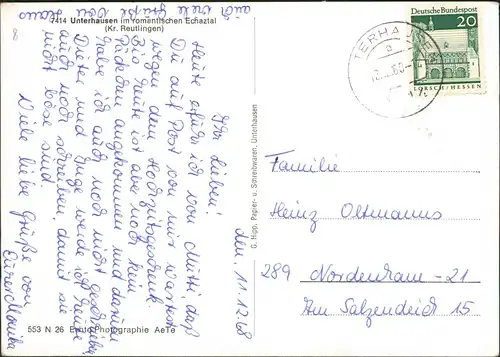 7414 Unterhausen im romantischen Echaztal
(Kr. Reutlingen)
auch viele
Grüße von
Klaus
den 11.12.68
Ihr Lieben!
Heute erfuhr ich von Mutti, daß
Ihr auf Post von mir wartet
wegen dem Hochzeitsgeschenk.
Bis heute ist aber noch kein
Päckchen angekommen und darum
habe ich auch noch nicht geschrieben.
Dieter und Inge werde ich heute
auch noch schreiben, damit sie
nicht böse sind.
Viele liebe Grüße von
Eurer Monika
553 N 26 Photographie AeTe
G. Hipp, Papier- u. Schreibwaren, Unterhausen
Deutsche Bundespost
20
LORSCH/HESSEN
TERHAUSE
a
Familie
Heinz Oltmanns
289 Nordenham-21
Am Salzendeich 15